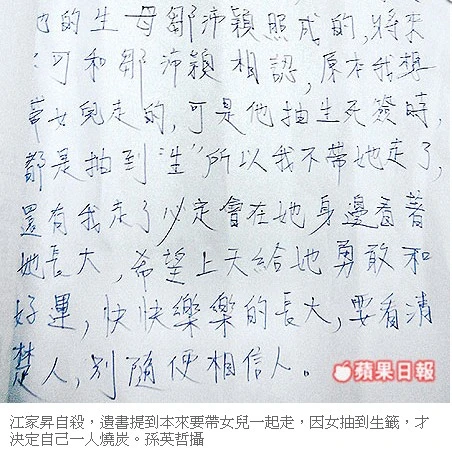 也的生母鄒沛穎照成的,將來
可和鄒沛穎相認,原本我想
帶女兒走的,可是他抽生死簽時,
都是抽到"生"所以我不帶她走了,
還有我走了必定會在她身邊看著
她長大,希望上天給她勇敢和
好運,快快樂樂的長大,要看清
楚人,別隨便相信人。
蘋果日報
江家昇自殺,遺書提到本來要帶女兒一起走,因女抽到生籤,才
決定自己一人燒炭。孫英哲攝